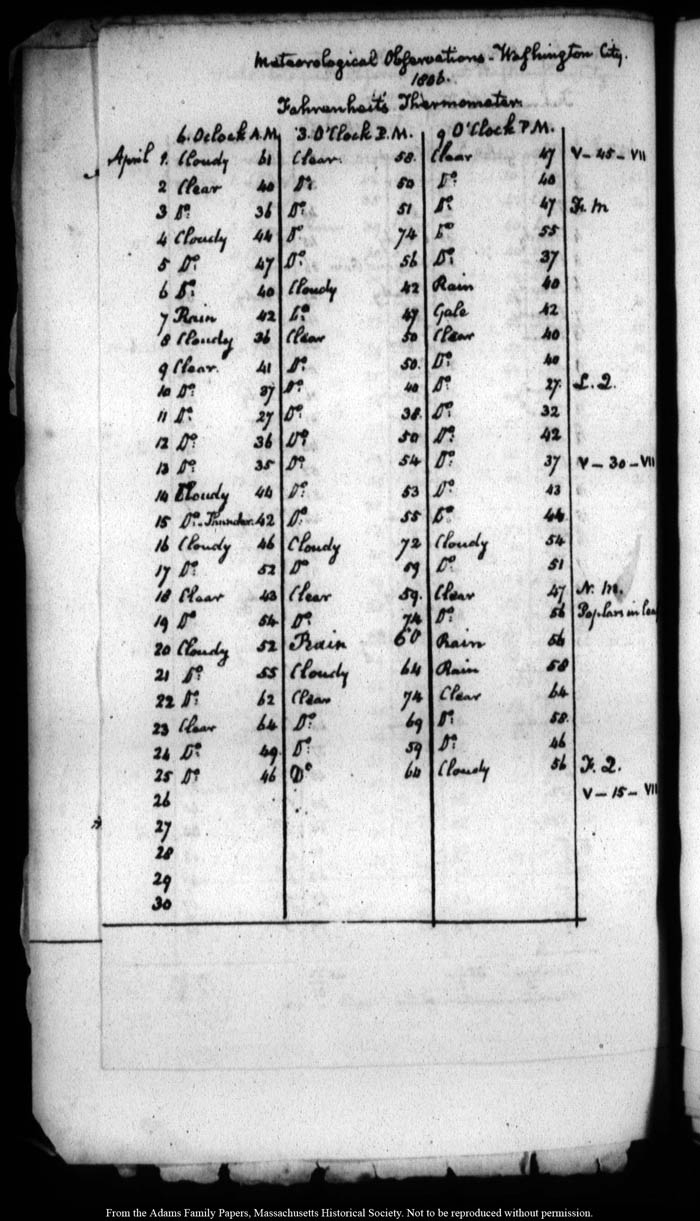 Meteorological Observations - Washington City.
1806.
Fahrenheit's Thermometer.
6. Oclock A.M. 3. O'Clock P.M. 9 O'Clock P.M.
April 1. Cloudy 61 Clear. 58. Clear 47 V - 45 - VII
2 Clear 40 Do. 50 Do. 40
3 Do. 36 Do. 51 Do. 47 F. M
4 Cloudy 44 Do. 74 Do. 55
5 Do. 47 Do. 56 Do. 37
6 Do. 40 Cloudy 42 Rain 40
7 Rain 42 Do. 47 Gale 42
8 Cloudy 36 Clear 50 Clear 40
9 Clear. 41 Do. 50. Do. 40
10 Do. 37 Do. 40 Do. 27. L. Q.
11 Do. 27 Do. 38. Do. 32
12 Do. 36 Do. 50 Do. 42
13 Do. 35 Do. 54 Do. 37 V - 30 - VII
14 Cloudy 44 Do. 53 Do. 43
15 Do. Thunder. 42 Do. 55 Do. 44
16 Cloudy 46 Cloudy 72 Cloudy 54
17 Do. 52 Do 59 Do. 51
18 Clear 43 Clear 59. Clear 47 N. M.
19 Do 54 Do. 74 Do. 56 Poplars in lea
20 Cloudy 52 Rain 60 Rain 56
21 Do. 55 Cloudy 64 Rain 58
22 Do. 62 Clear 74 Clear 64
23 Clear 64 Do. 69 Do. 58.
24 Do. 49. Do. 59 Do. 46
25 Do. 46 Do 64 Cloudy 56 F. Q.
26 V - 15 - VII
27
28
29
30
From the Adams Family Papers, Massachusetts Historical Society. Not to be reproduced without permission.